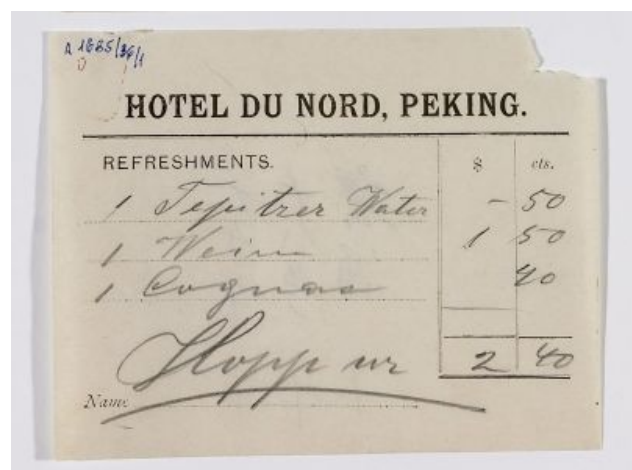 A 1685/36/1
HOTEL DU NORD, PEKING.
REFRESHMENTS. $ cts.
1 Tepitzer Water - 50
1 Wein 1 50
1 Cognac 40
Hopp ur
2 40
Name